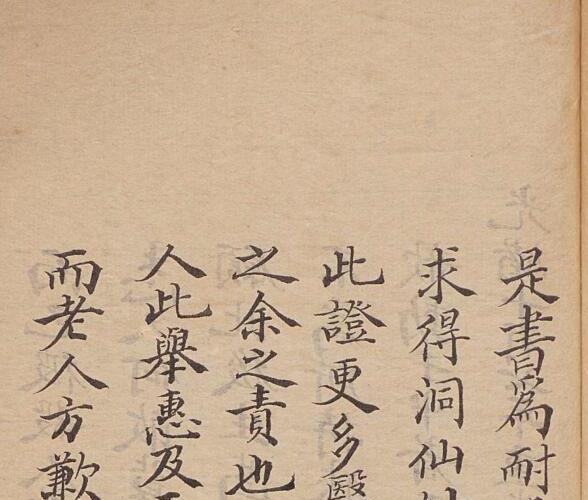 是書爲耐
求得洞仙
此證更多醫
之余之責也
人此舉惠及
而老人方歉